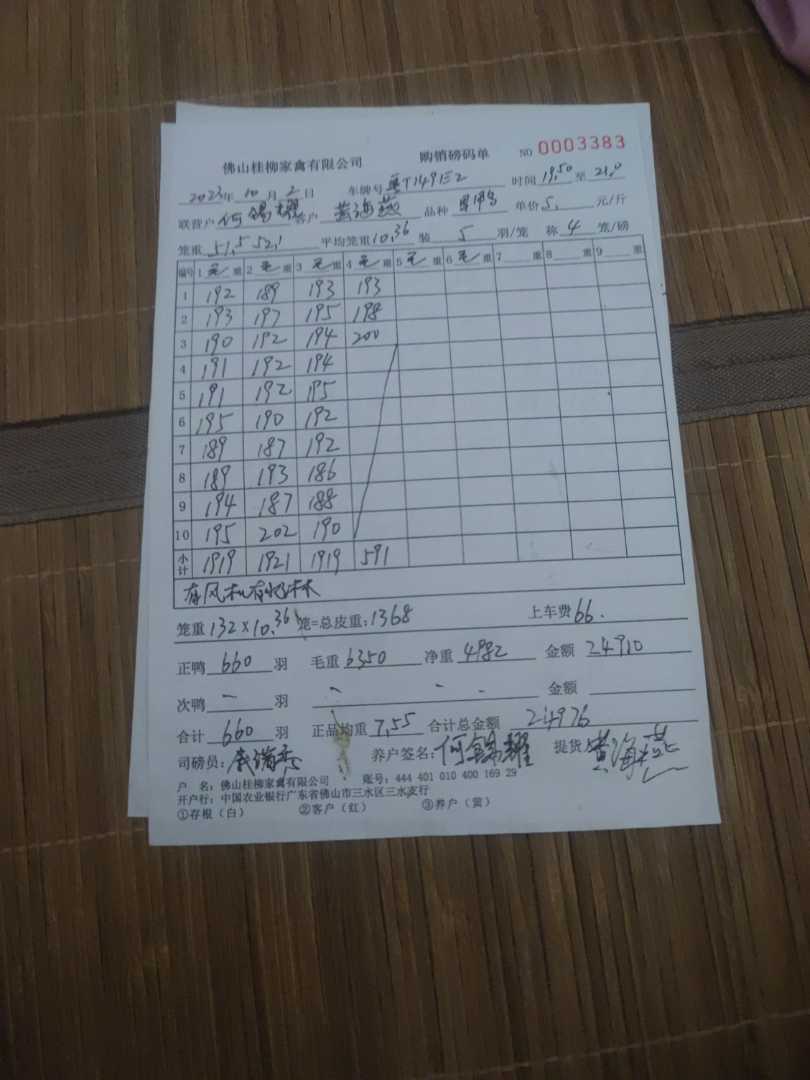 佛山桂柳家禽有限公司 购销磅码单 NO 0003383
2023年 10 月 2 日 车牌号 粤T149E2 时间 19.50 至 21.0
联营户 何锦耀 客户 黄海燕 品种 单价 5. 元/斤
笼重 51.5 52.1 平均笼重 10.36 装 5 羽/笼 称 4 笼/磅
编号 1 毛 重 2 毛 重 3 毛 重 4 毛 重 5 毛 重 6 毛 重 7 重 8 重 9 重
1 192 189 193 193
2 193 197 195 198
3 190 192 194 200
4 191 192 194
5 191 192 195
6 195 190 192
7 189 187 192
8 189 193 186
9 194 187 188
10 195 202 190
小计 1919 1921 1919 591
有风机有
笼重 132×10.36 笼=总皮重:1368 上车费 66.
正鸭 660 羽 毛重 6350 净重 4982 金额 24910
次鸭 - 羽 - - - 金额
合计 660 羽 正品均重 7.55 合计总金额 24976
司磅员: 养户签名: 何锦耀 提货人 黄海燕
户 名: 佛山桂柳家禽有限公司 账号: 444 401 010 400 169 29
开户行: 中国农业银行广东省佛山市三水区三水支行
①存根(白) ②客户(红) ③养户(黄)